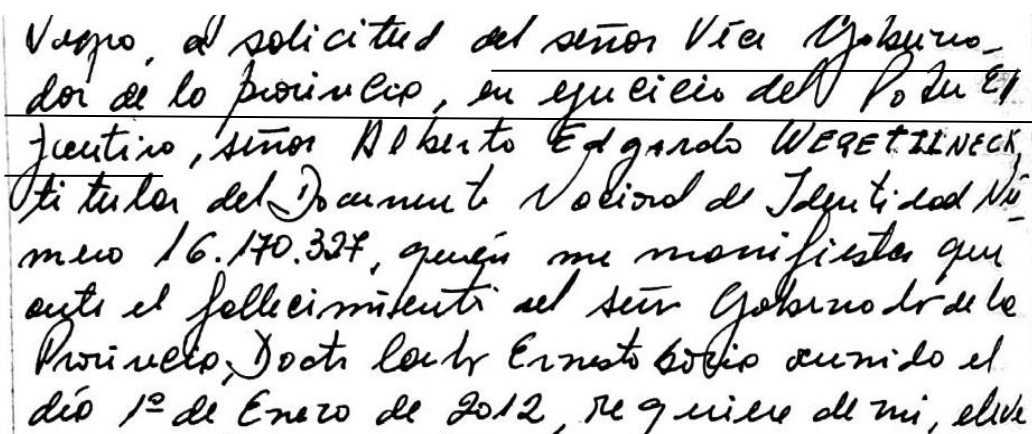 Vagno, a solicitud del señor Vice Goberna-
dor de la provincia, en ejercicio del Poder Ej
ecutivo, señor Alberto Edgardo WERETILNECK,
titular del Documento Nacional de Identidad Nú-
mero 16.170.327, quién me manifiesta que
ante el fallecimiento del señor Gobernador de la
Provincia, Doctor Carlos Ernesto Soria ocurrido el
día 1º de Enero de 2012, requiere de mi, eleve